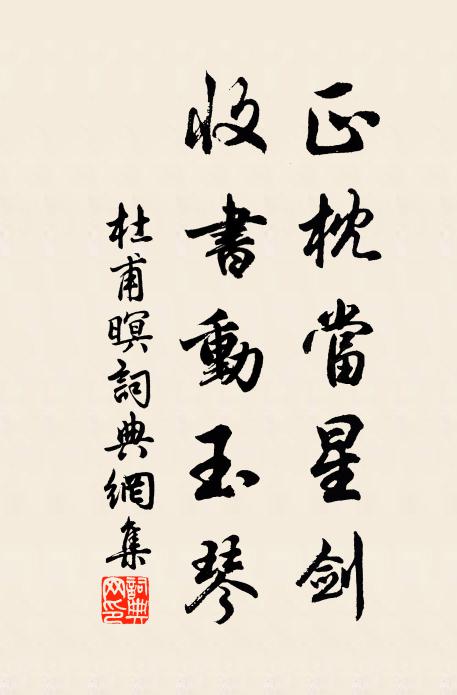 正枕當星剑
收書動玉琴
杜甫暝詞典網集
詞典網印